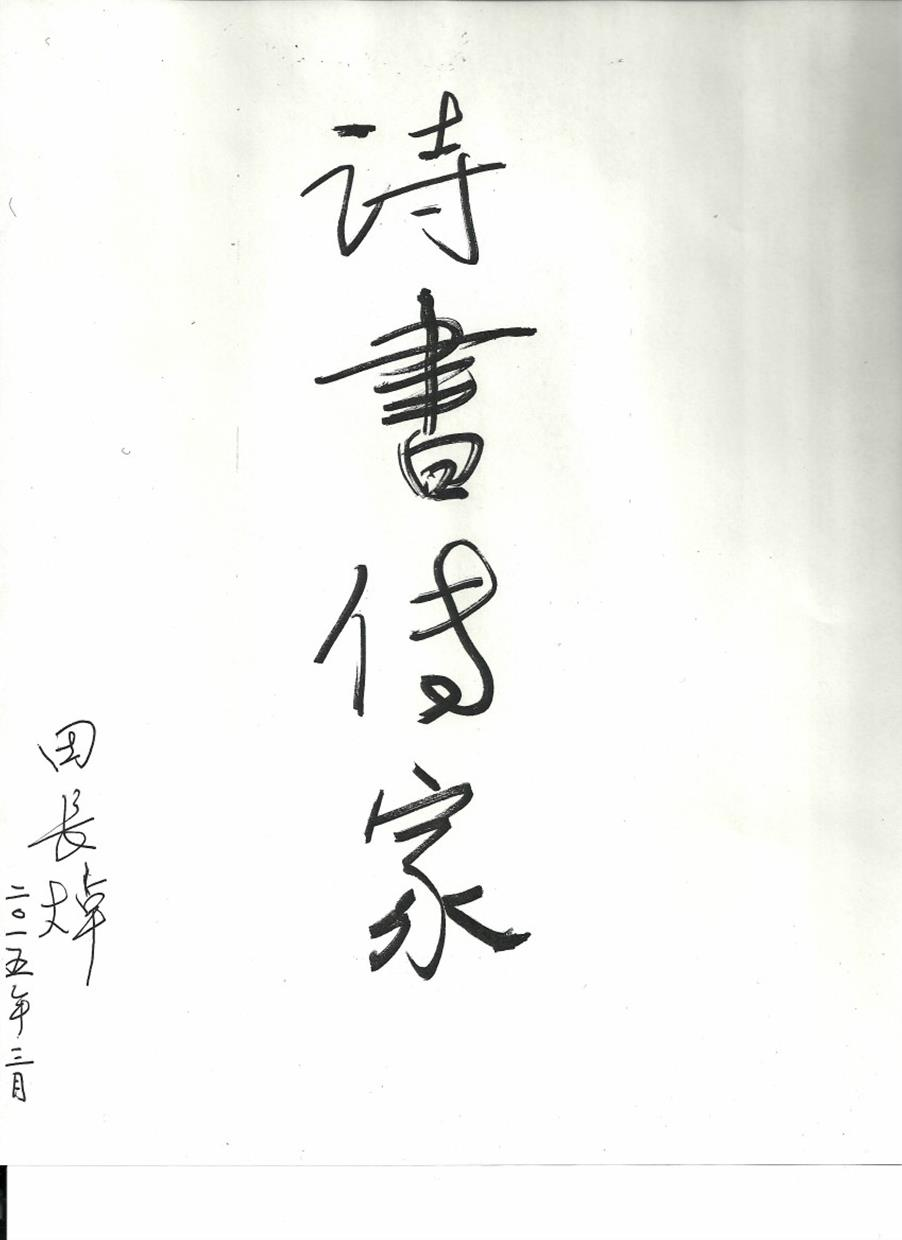 诗書傳家
田長焯
二〇一五年三月